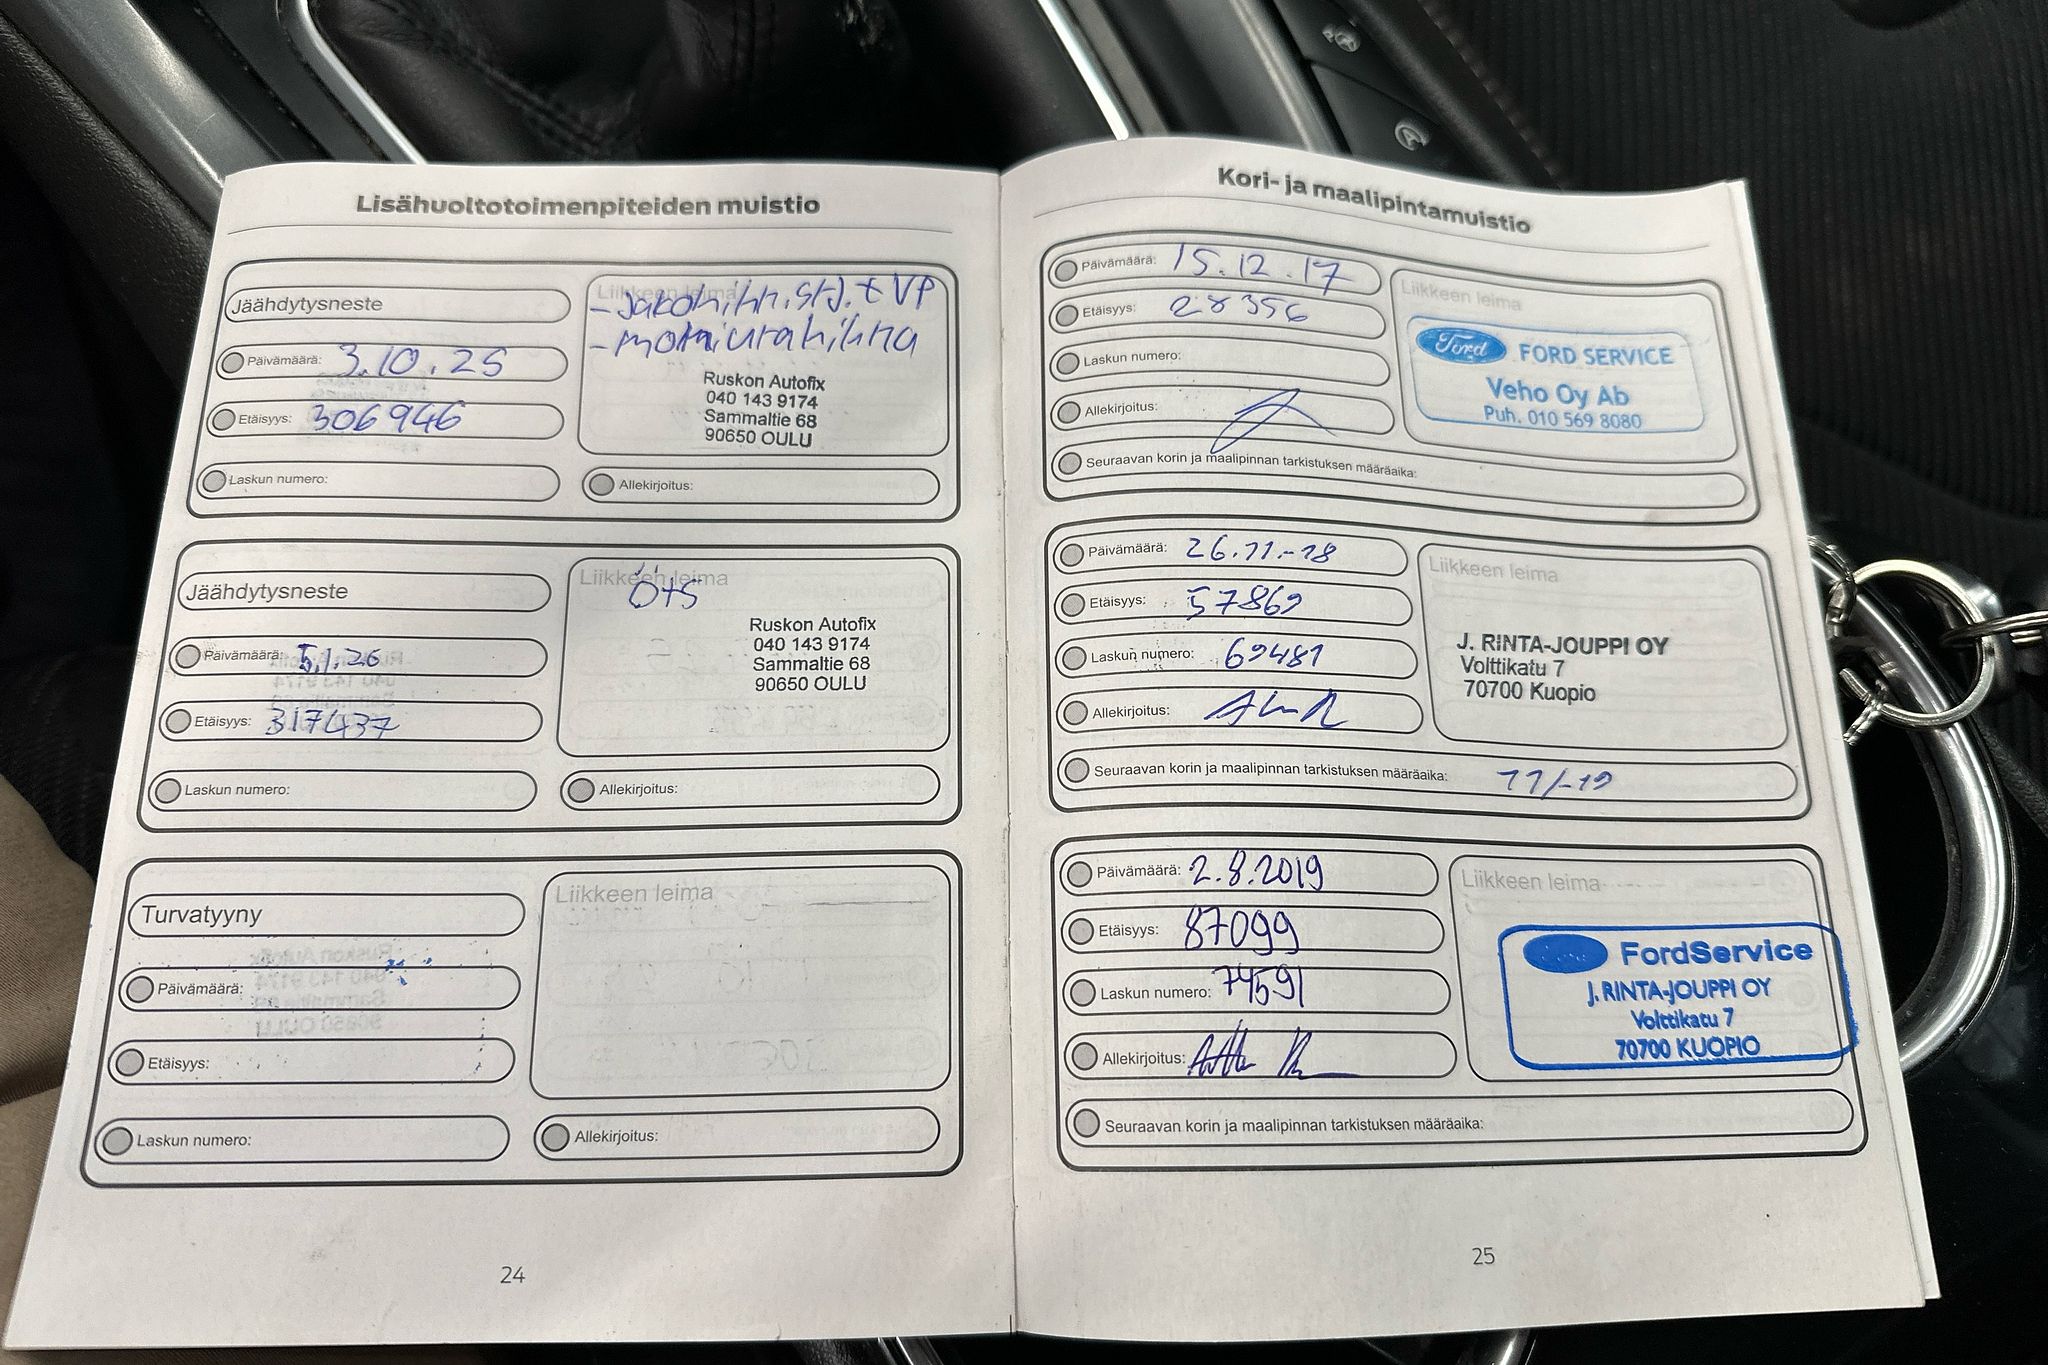 Lisähuoltotoimenpiteiden muistio
Jäähdytysneste
Liikkeen leima
- Jakohihn.srj. + VP
- moniurahihna
Päivämäärä: 3.10.25
Etäisyys: 306946
Ruskon Autofix
040 143 9174
Sammaltie 68
90650 OULU
Laskun numero:
Allekirjoitus:
Jäähdytysneste
Liikkeen leima
Ö+S
Päivämäärä: 5.1.26
Etäisyys: 317437
Ruskon Autofix
040 143 9174
Sammaltie 68
90650 OULU
Laskun numero:
Allekirjoitus:
Turvatyyny
Liikkeen leima
Päivämäärä:
Etäisyys:
Laskun numero:
Allekirjoitus:
24
Kori- ja maalipintamuistio
Päivämäärä: 15.12.17
Etäisyys: 28356
Laskun numero:
Allekirjoitus:
Liikkeen leima
Ford FORD SERVICE
Veho Oy Ab
Puh. 010 569 8080
Seuraavan korin ja maalipinnan tarkistuksen määräaika:
Päivämäärä: 26.11.-18
Etäisyys: 57869
Laskun numero: 69481
Allekirjoitus:
Liikkeen leima
J. RINTA-JOUPPI OY
Volttikatu 7
70700 Kuopio
Seuraavan korin ja maalipinnan tarkistuksen määräaika: 11/-19
Päivämäärä: 2.8.2019
Etäisyys: 87099
Laskun numero: 74591
Allekirjoitus:
Liikkeen leima
FordService
J. RINTA-JOUPPI OY
Volttikatu 7
70700 KUOPIO
Seuraavan korin ja maalipinnan tarkistuksen määräaika:
25